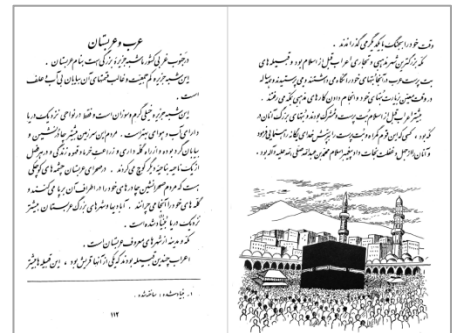 عرب و عربستان
در جنوب غربی کشور ما شبه جزیرهٔ بزرگی است بنام عربستان .
این شبه جزیره کم جمعیت و غالب قسمتهای آن بیابان بی آب و علف
است .
این شبه جزیره خیلی گرم و سوزان است و فقط در نواحی نزدیک دریا
دارای آب و هوای بهتر است . مردم این سرزمین بیشتر چادرنشین و
بیابان گرد بوده و از راه گله داری و زراعت خرما و قهوه زندگی و در هر فصل
از یک ناحیه بناحیهٔ دیگر کوچ می کردند . در صحرای عربستان چشمه های کوچکی
است که مردم صحرانشین چادرهای خود را در اطراف آن برپا می کنند و
گله های خود را آنجا می چرانند . آبادیها و شهرهای بزرگ عربستان بیشتر
نزدیک دریا بنیاد شده است .
مکه و مدینه از شهرهای معروف عربستان است .
اعراب چندین قبیله بودند که یکی از آنها قریش بود . این قبیله ها بیشتر
۱. بنیاد شده : ساخته شده .
۱۱۲
وقت خود را بجنگ با یکدیگر می گذراندند .
مکه بزرگترین شهر مذهبی و تجارتی اعراب قبل از اسلام بود و قبیله های
بت پرست عرب در آنجا بتهای خود را نگاه می داشتند و می پرستیدند و هر ساله
در وقت معین زیارت بتهای خود و انجام دادن کارهای مذهبی بمکه می رفتند .
بیشتر اعراب قبل از اسلام بت پرست و مشرک بودند و بتهای بزرگ آنان در
مکه بود . کسی که این قوم گمراه و بت پرست را بپرستش خدای یگانه راهنمایی فرمود
و آنان را از جهل و غفلت نجات داد پیغمبر اسلام محمد بن عبدالله صلی الله علیه و آله بود .